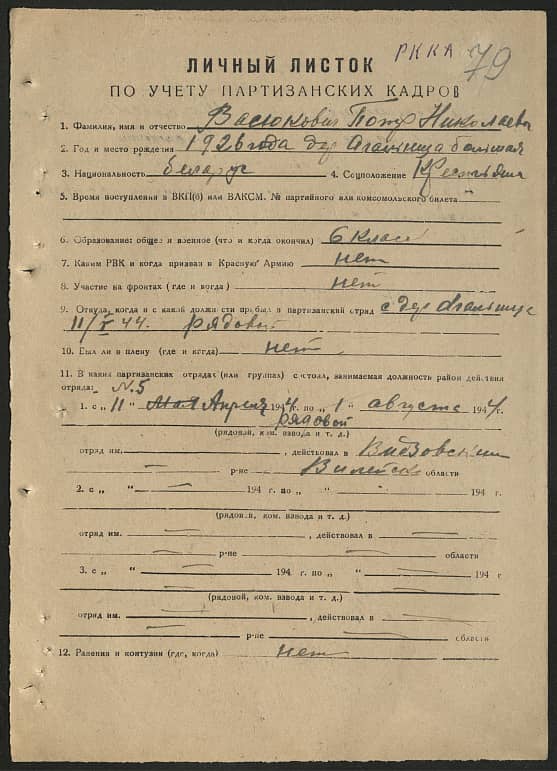 РККА 79
ЛИЧНЫЙ ЛИСТОК
ПО УЧЕТУ ПАРТИЗАНСКИХ КАДРОВ
1. Фамилия, имя и отчество Васюкович Петр Николаевич
2. Год и место рождения 1926 года дер
3. Национальность беларус 4. Соцположение
5. Время поступления в ВКП(б) или ВЛКСМ. № партийного или комсомольского билета
6. Образование: общее и военное (что и когда окончил) 6 класс
7. Каким РВК и когда призван в Красную Армию нет
8. Участие на фронтах (где и когда) нет
9. Откуда, когда и с какой должности прибыл в партизанский отряд с дер
11/V 44. рядовой
10. Был ли в плену (где и когда) нет
11. В каких партизанских отрядах (или группах) состоял, занимаемая должность район действия
отряда: N.5
1. с „ 11 “ мая Апреля 1944 г. по „ 1 “ августа 1944 г.
рядовой
(рядовой, ком. взвода и т. д.)
отряд им. , действовал в
р-не Вилейской области
2. с „ “ 194 г. по „ “ 194 г.
(рядовой, ком. взвода и т. д.)
отряд им. , действовал в
р-не области
3. с „ “ 194 г. по „ “ 194 г
(рядовой, ком. взвода и т. д.)
отряд им. , действовал в
р-не области
12. Ранения и контузии (где, когда) нет